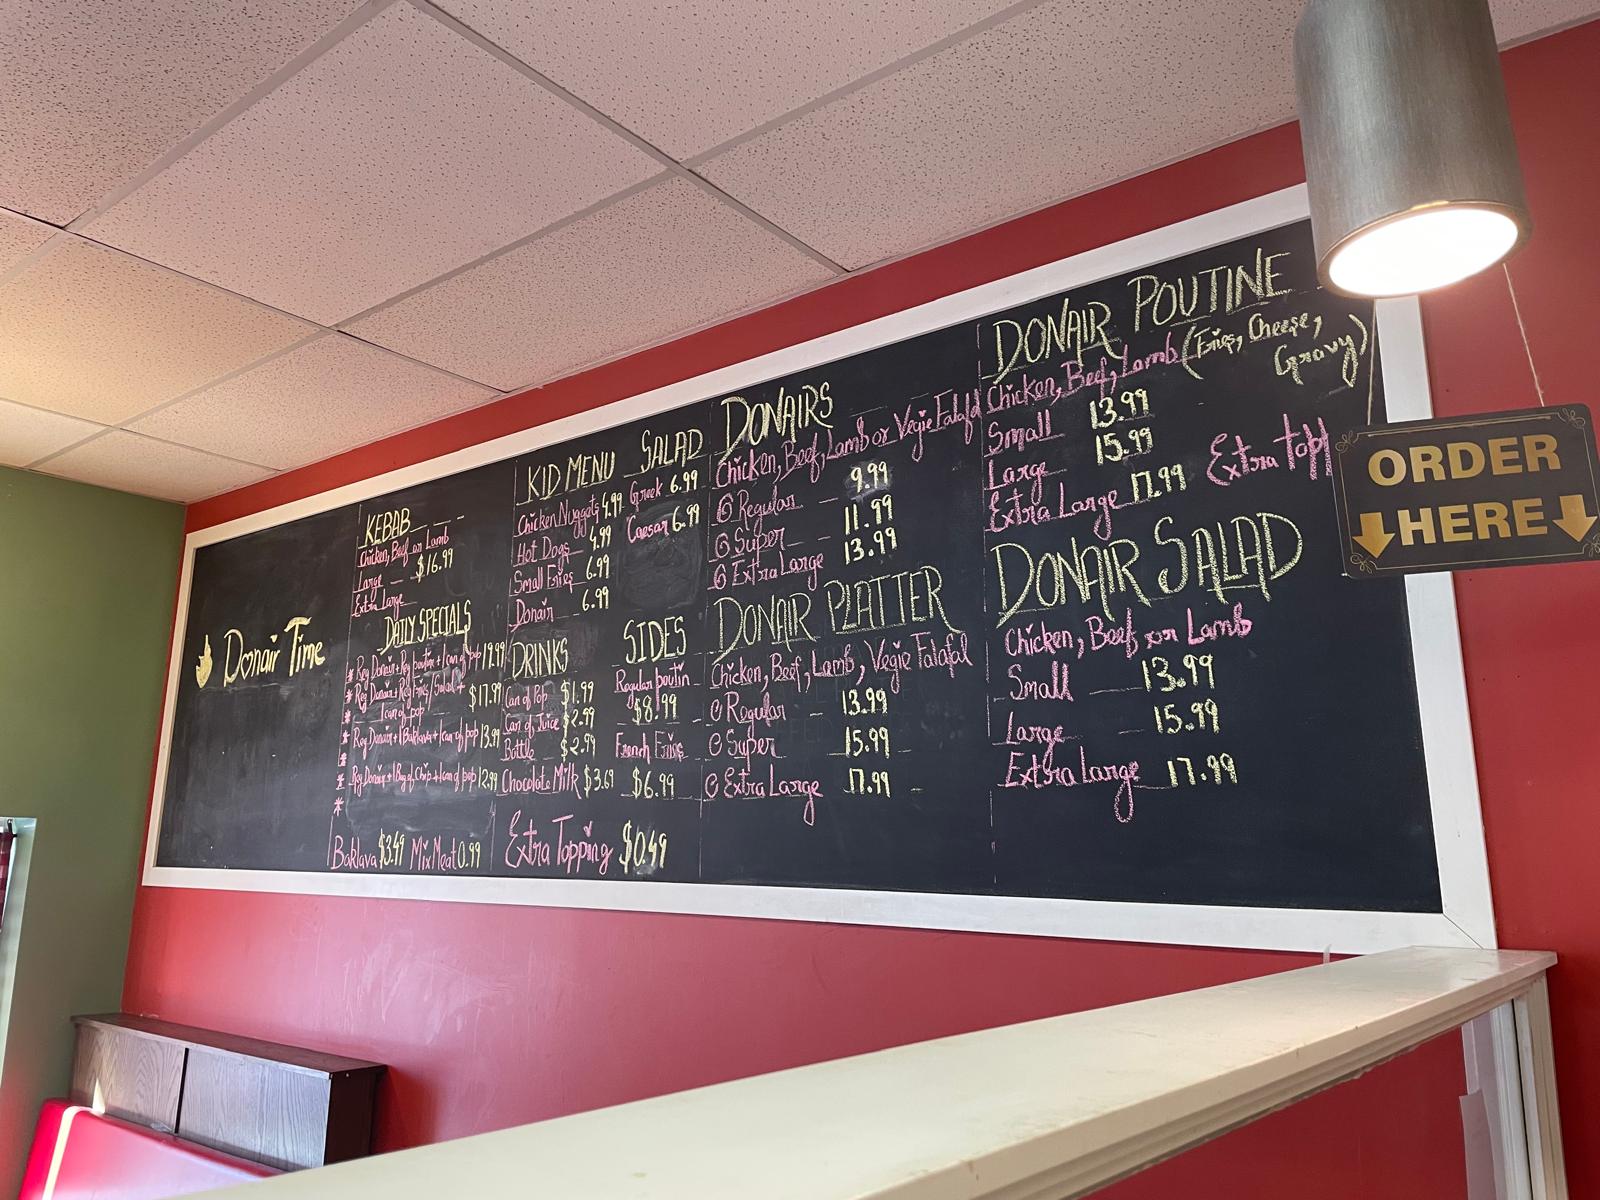 Donair Time
KEBAB
Chicken, Beef or Lamb
Large $16.99
Extra Large
DAILY SPECIALS
* Reg Donair + Reg poutin + 1 can of pop 19.99
* Reg Donair + Reg Fries/Salad + $17.99
* 1 can of pop
* Reg Donair + 1 Baklava + 1 can of pop 13.99
*
* Reg Donair + 1 Bag of Chip + 1 can of pop 12.99
*
Baklava $3.49 Mix Meat 0.99
KID MENU
Chicken Nuggets 4.99
Hot Dogs 4.99
Small Fries 6.99
Donair 6.99
SALAD
Greek 6.99
Caesar 6.99
DRINKS
Can of Pop $1.99
Can of Juice $2.99
Bottle $2.99
Chocolate Milk $3.69
SIDES
Regular poutin
$8.99
French Fries
$6.99
Extra Topping $0.49
DONAIRS
Chicken, Beef, Lamb or Vegie Falafal
Regular 9.99
Super 11.99
Extra Large 13.99
DONAIR PLATTER
Chicken, Beef, Lamb, Vegie Falafal
Regular 13.99
Super 15.99
Extra Large 17.99
DONAIR POUTINE
Chicken, Beef, Lamb (Fries, Cheese,
Gravy)
Small 13.99
Large 15.99
Extra Large 17.99 Extra
DONAIR SALAD
Chicken, Beef, or Lamb
Small 13.99
Large 15.99
Extra Large 17.99
ORDER
HERE